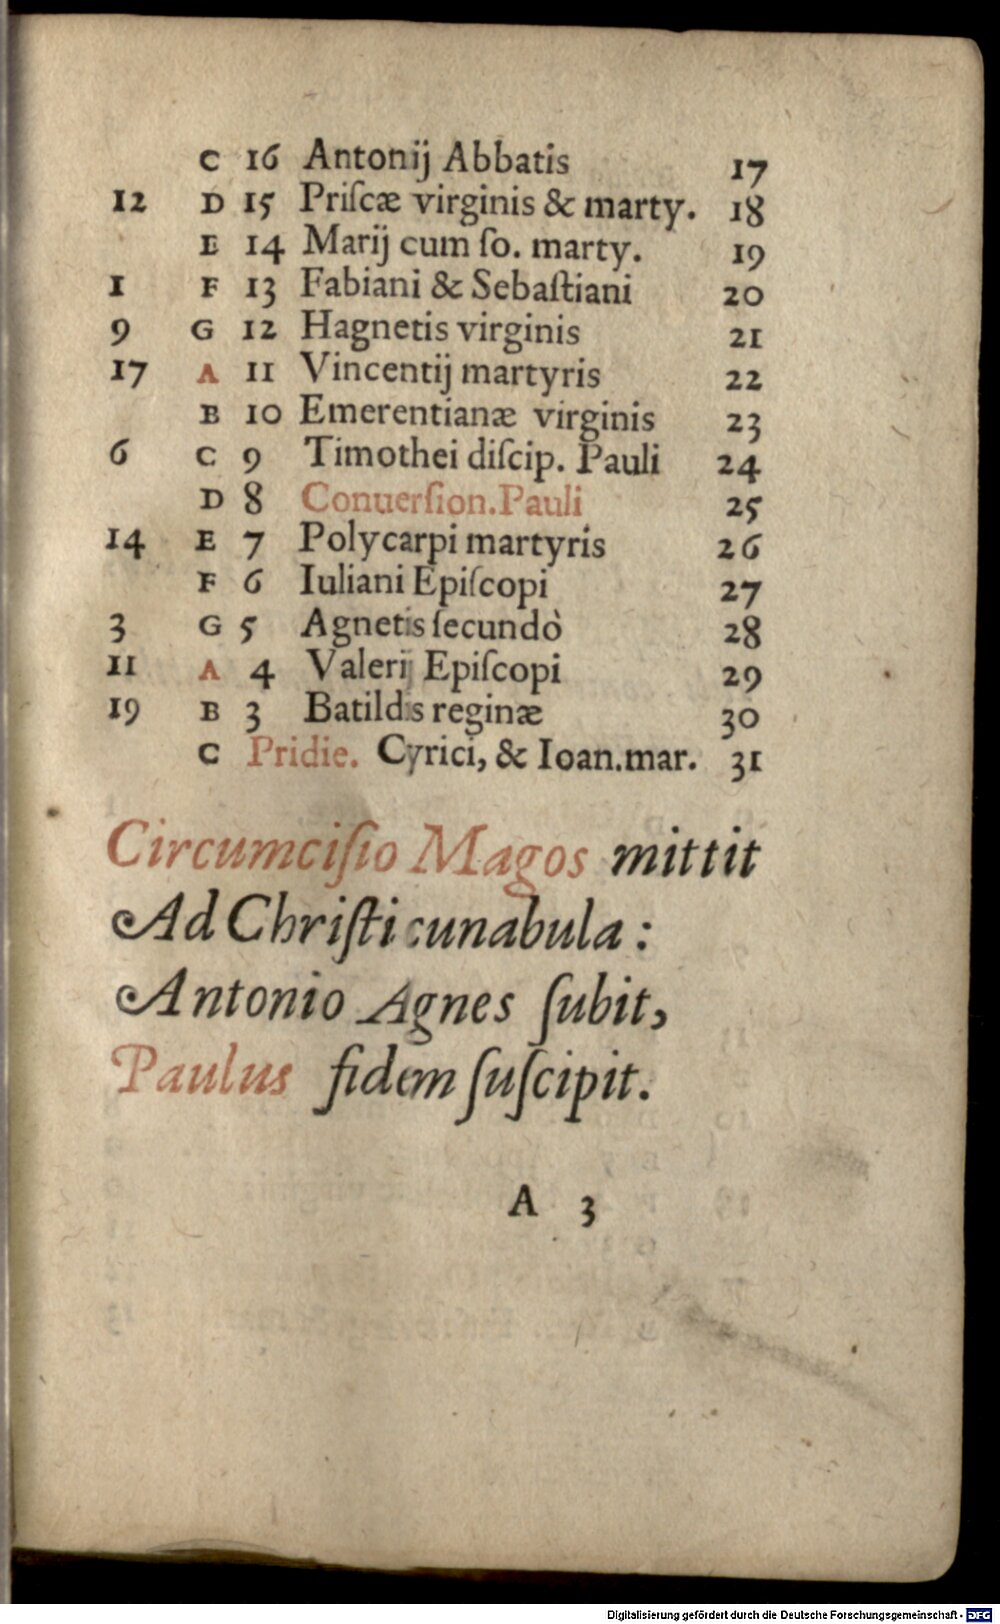 C 16 Antonij Abbatis 17
12 D 15 Priſcæ virginis & marty. 18
E 14 Marij cum ſo. marty. 19
1 F 13 Fabiani & Sebaſtiani 20
9 G 12 Hagnetis virginis 21
17 A 11 Vincentij martyris 22
B 10 Emerentianæ virginis 23
6 C 9 Timothei diſcip. Pauli 24
D 8 Conuerſion.Pauli 25
14 E 7 Polycarpi martyris 26
F 6 Iuliani Epiſcopi 27
3 G 5 Agnetis ſecundò 28
11 A 4 Valerij Epiſcopi 29
19 B 3 Batildis reginæ 30
C Pridie. Cyrici, & Ioan.mar. 31
Circumciſio Magos mittit
Ad Chriſti cunabula :
Antonio Agnes ſubit,
Paulus fidem ſuſcipit.
A 3
Digitalisierung gefördert durch die Deutsche Forschungsgemeinschaft - DFG